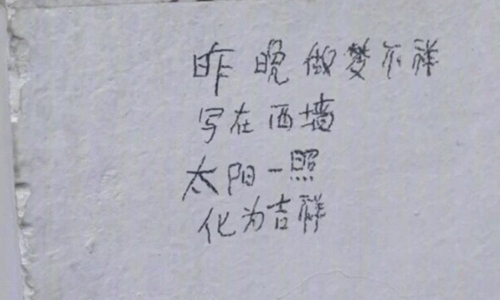 昨晚做梦不祥
写在西墙
太阳一照
化为吉祥